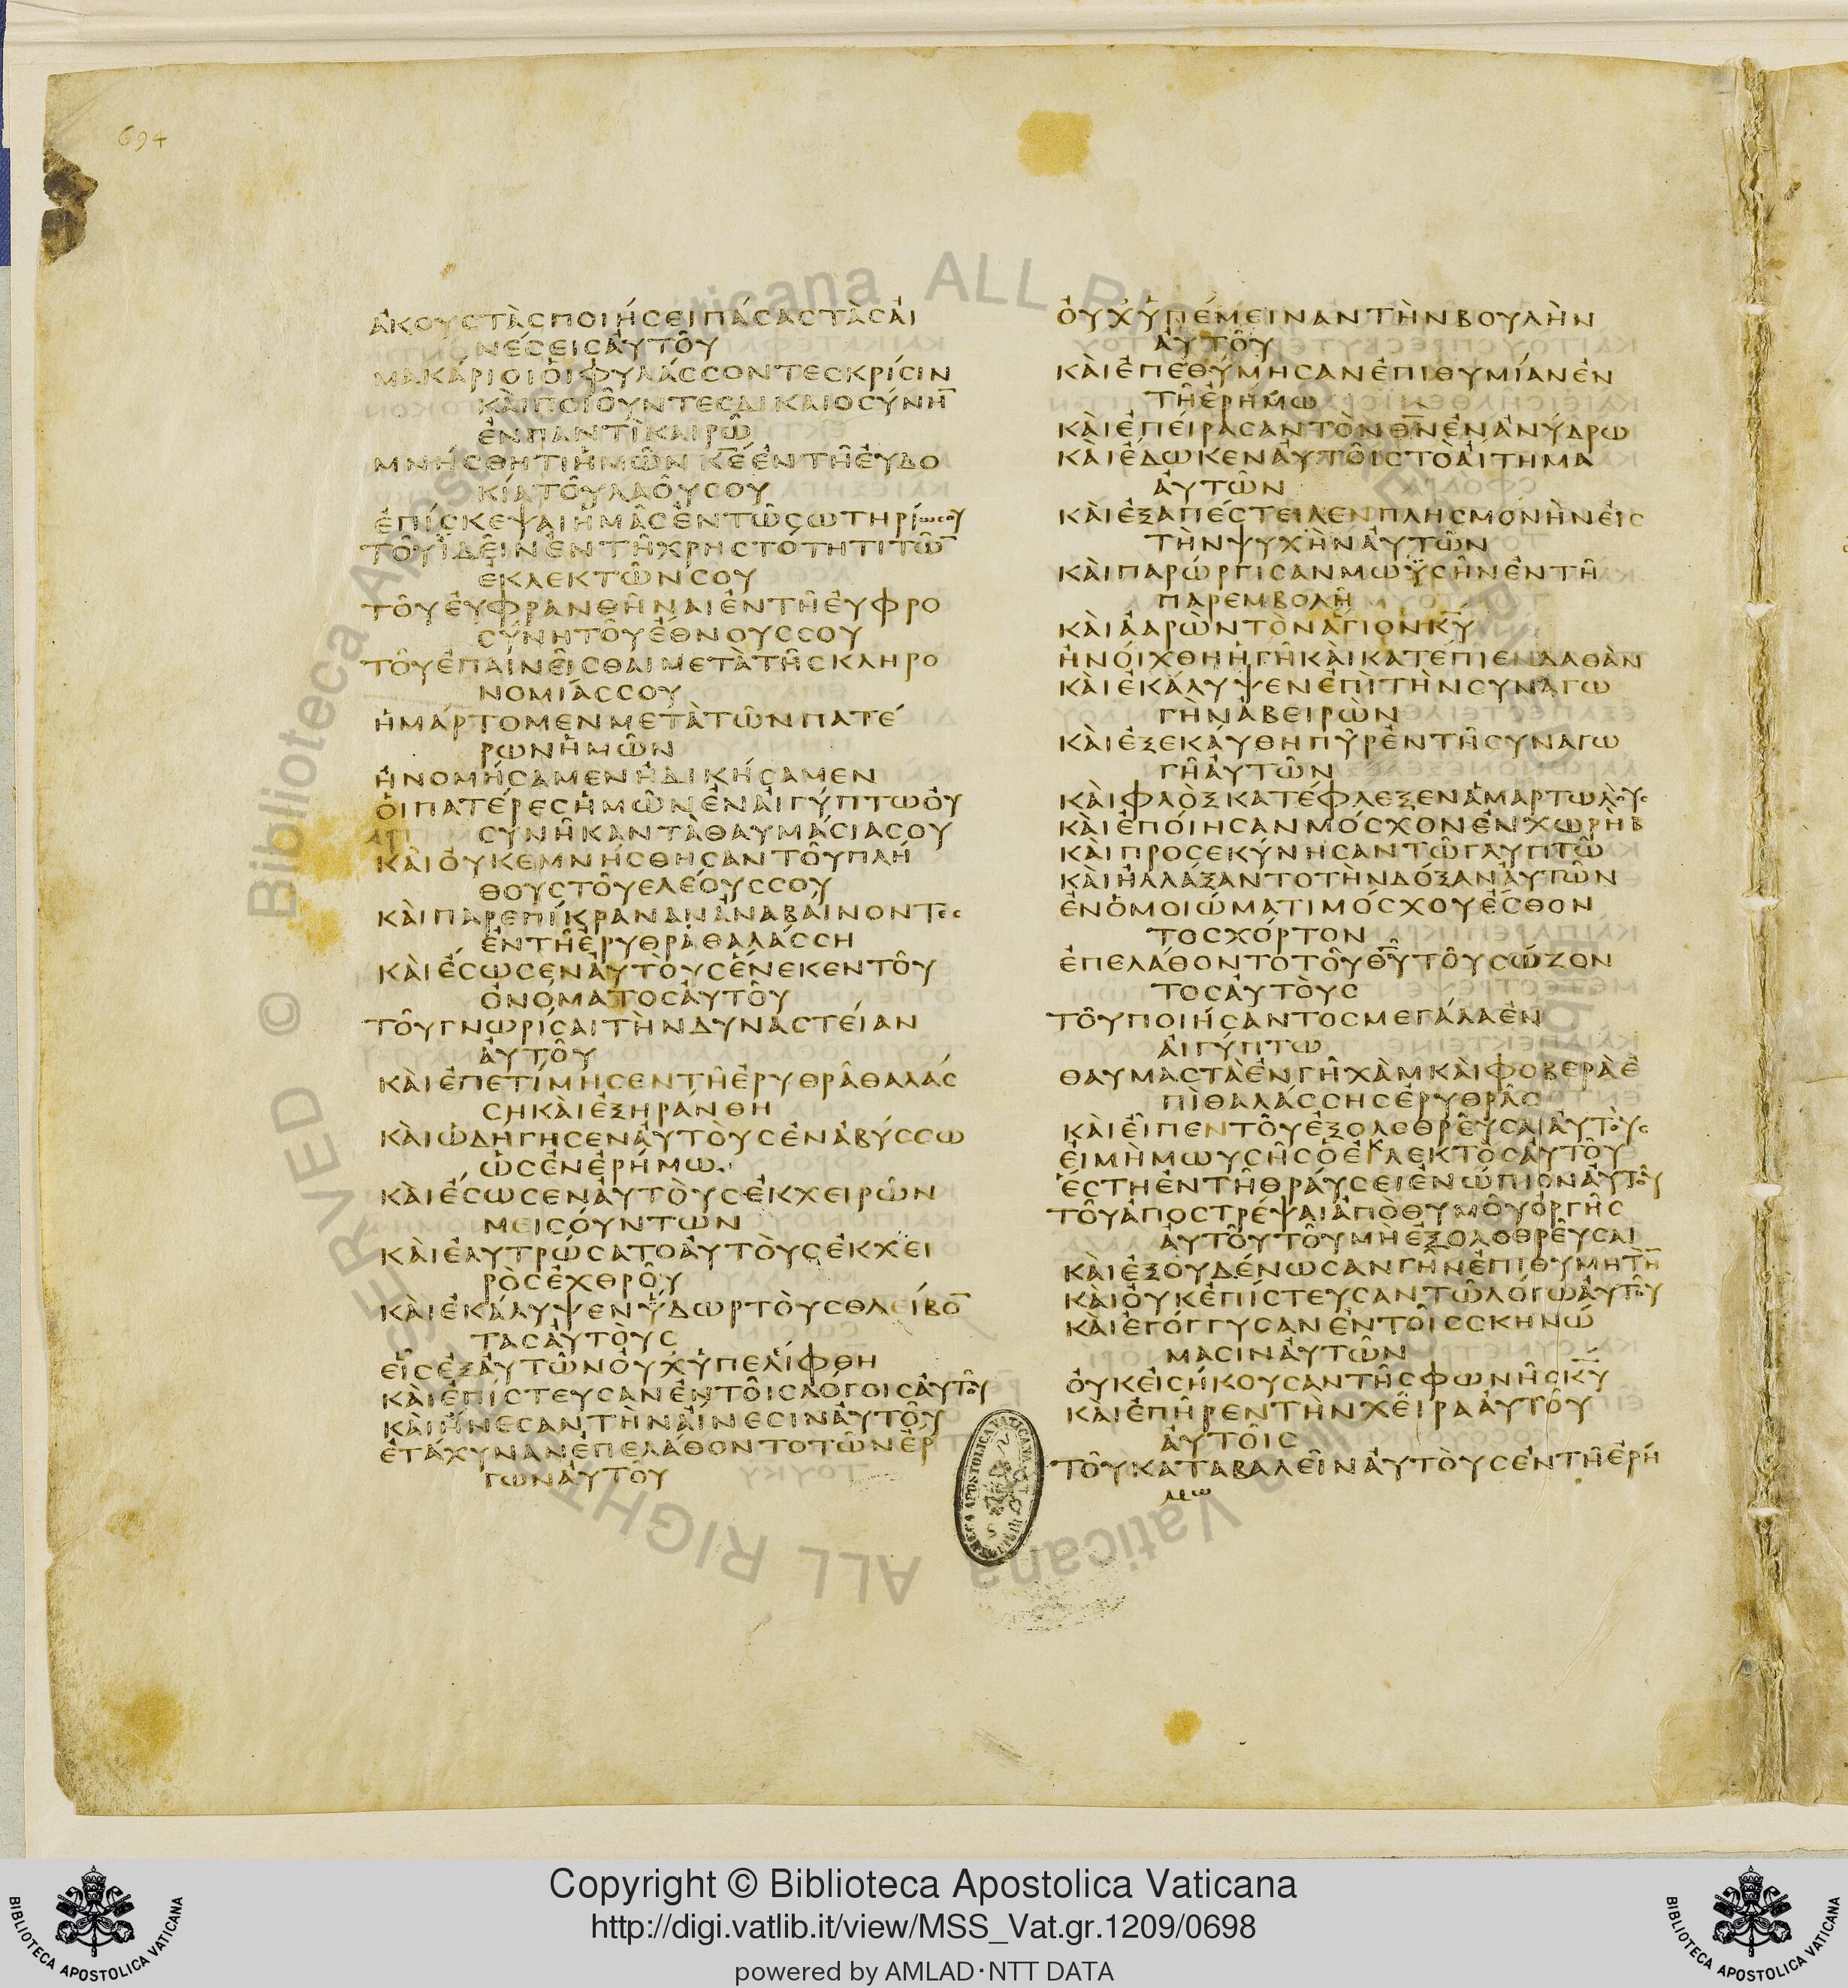 694
ἀκουστὰσποιήσειπάσαστὰσἀι
νέσεισἀυτο͂υ
μακάριοιὁιφυλάσσοντεσκρίσιν
κὰιποιο͂υντεσδικαιοσύνη̅
ἐνπαντὶκαιρῶ
μνήσθητιἡμῶνκ̅ε̅ἐντῆἐυδο
κίατο͂υλαο͂υσου
ἐπίσκεψαιἡμᾶσἐντῶσωτηρίωσου
το͂υἰδε͂ινἐντῆχρηστότητιτῶ̅
ἐκλεκτῶνσου
το͂υἐυφρανθῆναιἐντῆἐυφρο
σύνητο͂υἔθνουσσου
το͂υἐπαινε͂ισθαιμετὰτῆσκληρο
νομίασσου
ἡμάρτομενμετὰτῶνπατέ
ρωνἡμῶν
ἠνομήσαμενἠδικήσαμεν
ὁιπατέρεσἡμῶνἐνἀιγύπτωὀυ
συνῆκαντὰθαυμάσιασου
κὰιὀυκεμνήσθησαντο͂υπλή
θουστο͂υελέουσσου
κὰιπαρεπίκρανανἀναβάινοντεσ
ἐντῆἐρυθρᾶθαλάσση
κὰιἔσωσενἀυτὸυσἕνεκεντο͂υ
ὀνόματοσἀυτο͂υ
το͂υγνωρίσαιτὴνδυναστέιαν
ἀυτο͂υ
κὰιἐπετίμησεντῆἐρυθρᾶθαλάσ
σηκὰιἐξηράνθη
κὰιὡδήγησενἀυτὸυσἐνἀβύσσω
ὡσἐνἐρήμω
κὰιἔσωσενἀυτὸυσἐκχειρῶν
μεισόυντων
κὰιἐλυτρώσατοἀυτὸυσἐκχει
ρὸσἐχθρο͂υ
κὰιἐκάλυψενὕδωρτὸυσθλείβο̅
τασἀυτὸυσ
ε͂ἱσἐξἀυτῶνὀυχὑπελίφθη
κὰιἐπίστευσανἐντο͂ισλόγοισἀυτο͂υ
κὰιἤνεσαντὴνἀίνεσινἀυτο͂υ
ἐτάχυνανἐπελάθοντοτῶνἔρ
γωνἀυτο͂υ
ὀυχὑπέμεινιαντὴνβουλὴν
ἀυτο͂υ
κὰιἐπεθύμησανἐπιθυμίανἐν
τῆἐρήμω
κὰιἐπέιρασαντὸνθ̅ν̅ἐνἀνύδρω
κὰιἔδωκενἀυτο͂ιστοἀίτημα
ἀυτῶν
κὰιἐξαπέστειλενπλησμονὴνἐισ
τὴνψυχὴνἀυτῶν
κὰιπαρώργισανμωϋσῆνἐντῆ
παρεμβολῆ
κὰιἀαρὼντὸνἅγιονκ̅υ̅
ἠνόιχθηἡγῆκὰικατέπιενδαθὰν
κὰιἐκάλυψενἐπὶτὴνσυναγω
γὴνἀβειρὼν
κὰιἐξεκάυθηπῦρἐντῆσυναγω
γῆἀυτῶν
κὰιφλὸξκατέφλεξενἁμαρτωλόυσ
κὰιἐπόιησανμόσχονἐνχωρὴβ
κὰιπροσεκύνησαντῶγλυπτῶ
κὰιἠλλάξαντοτὴνδόξανἀυτῶν
ἐνὁμοιώματιμόσχουἔσθον
τοσχόρτον
ἐπελάθοντοτο͂υθ̅υ̅το͂υσώζον
τοσἀυτὸυσ
το͂υποιήσαντοσμεγάλαἐν
ἀιγύπτω
θαυμαστὰἐνγῆχὰμκὰιφοβερὰἐ
πὶθαλάσσησἐρυθρᾶσ
κὰιε͂ἰπεντο͂υἐξολοθρε͂υσαιἀυτὸυσ
ἐιμὴμωυσῆσὁἐκλεκτὸσἀυτο͂υ
ἔστηἐντῆθράυσειἐνώπιονἀυτο͂υ
το͂υἀποστρέψαιἀπὸθυμο͂υὀργῆσ
ἀυτο͂υτο͂υμὴἐξολοθρε͂υσαι
κὰιἐξουδένωσανγῆνἐπιθυμητὴ̅
κὰιὀυκἐπίστευσαντῶλόγωἀυτο͂υ
κὰιἐγόγγυσανἐντο͂ισσκηνώ
μασινἀυτῶν
ὀυκἐισήκουσαντῆσφωνῆσκ̅υ̅
κὰιἐπῆρεντὴνχε͂ιραἀυτο͂υ
ἀυτο͂ισ
το͂υκαταβαλε͂ινἀυτὸυσἐντῆἐρή
μω
Copyright © Biblioteca Apostolica Vaticana
http://digi.vatlib.it/view/MSS_Vat.gr.1209/0698
powered by AMLAD·NTT DATA
BIBLIOTECA APOSTOLICA VATICANA
BIBLIOTECA APOSTOLICA VATICANA